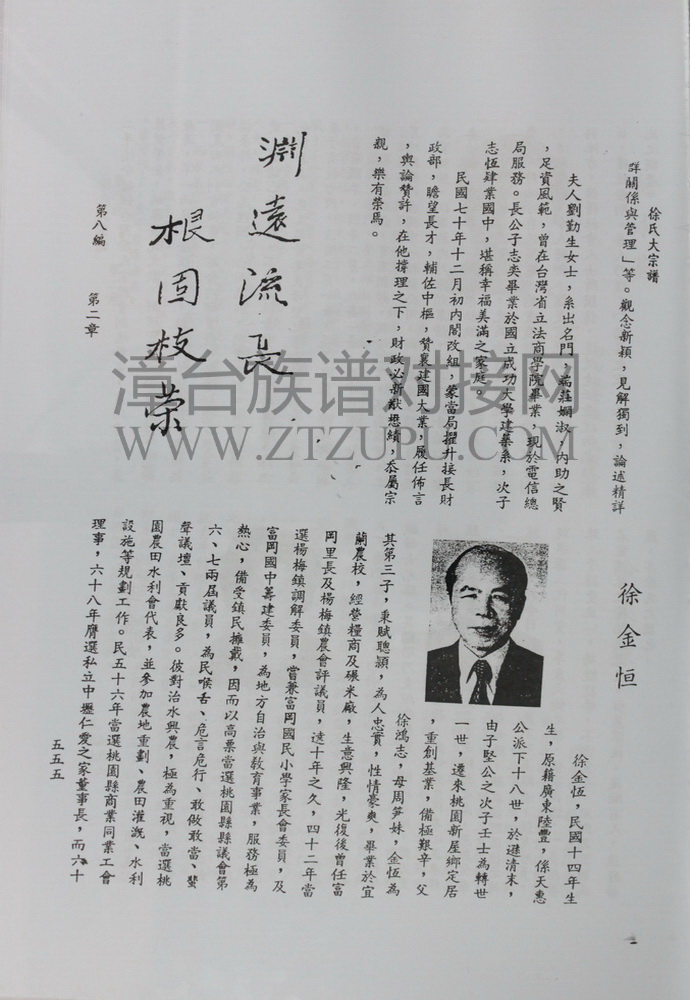 徐氏大宗譜
群關係與管理」等。觀念新穎，見解獨到，論述精詳
夫人劉勤生女士，系出名門，端莊嫻淑，內助之賢
，足資風範，曾在台灣省立法商學院畢業，現於電信總
局服務。長公子志类畢業於國立成功大學建築系，次子
志恆肆業國中，堪稱幸福美滿之家庭。
民國七十年十二月初內閣改組，蒙當局擢升接長財
政部，瞻望長才，輔佐中樞，贊襄建國大業，履任佈言
，與論贊許，在他撐理之下，財政必新猷懋績，忝屬宗
親，樂有榮焉。
淵遠流長
根固枝榮
第八編 第二章
徐金恒
徐金恆，民國十四年生
生，原籍廣東陸豐，係天惠
公派下十八世，於遜清末，
由子堅公之次子壬士為轉世
一世，遷來桃園新屋鄉定居
，重創基業，備極艱辛，父
徐鴻志，母周笋妹，金恆為
其第三子，秉賦聰穎，為人忠實，性情豪爽，畢業於宜
蘭農校，經營糧商及碾米廠，生意興隆，光復後曾任富
岡里長及楊梅鎮農會評議員，達十年之久，四十二年當
選楊梅鎮調解委員，嘗兼富岡國民小學家長會委員，及
富岡國中籌建委員，為地方自治與敎育事業，服務極為
熱心，備受鎮民擁戴，因而以高票當選桃園縣縣議會第
六、七兩屆議員，為民喉舌、危言危行、敢做敢當、蜚
聲議壇、貢獻良多。彼對治水興農，極為重視，當選桃
園農田水利會代表，並參加農地重劃、農田灌溉、水利
設施等規劃工作。民五十六年當選桃園縣商業同業工會
理事，六十八年膺選私立中壢仁愛之家董事長，而六十
五五五
漳台族谱对接网
WWW.ZTZUPU.COM